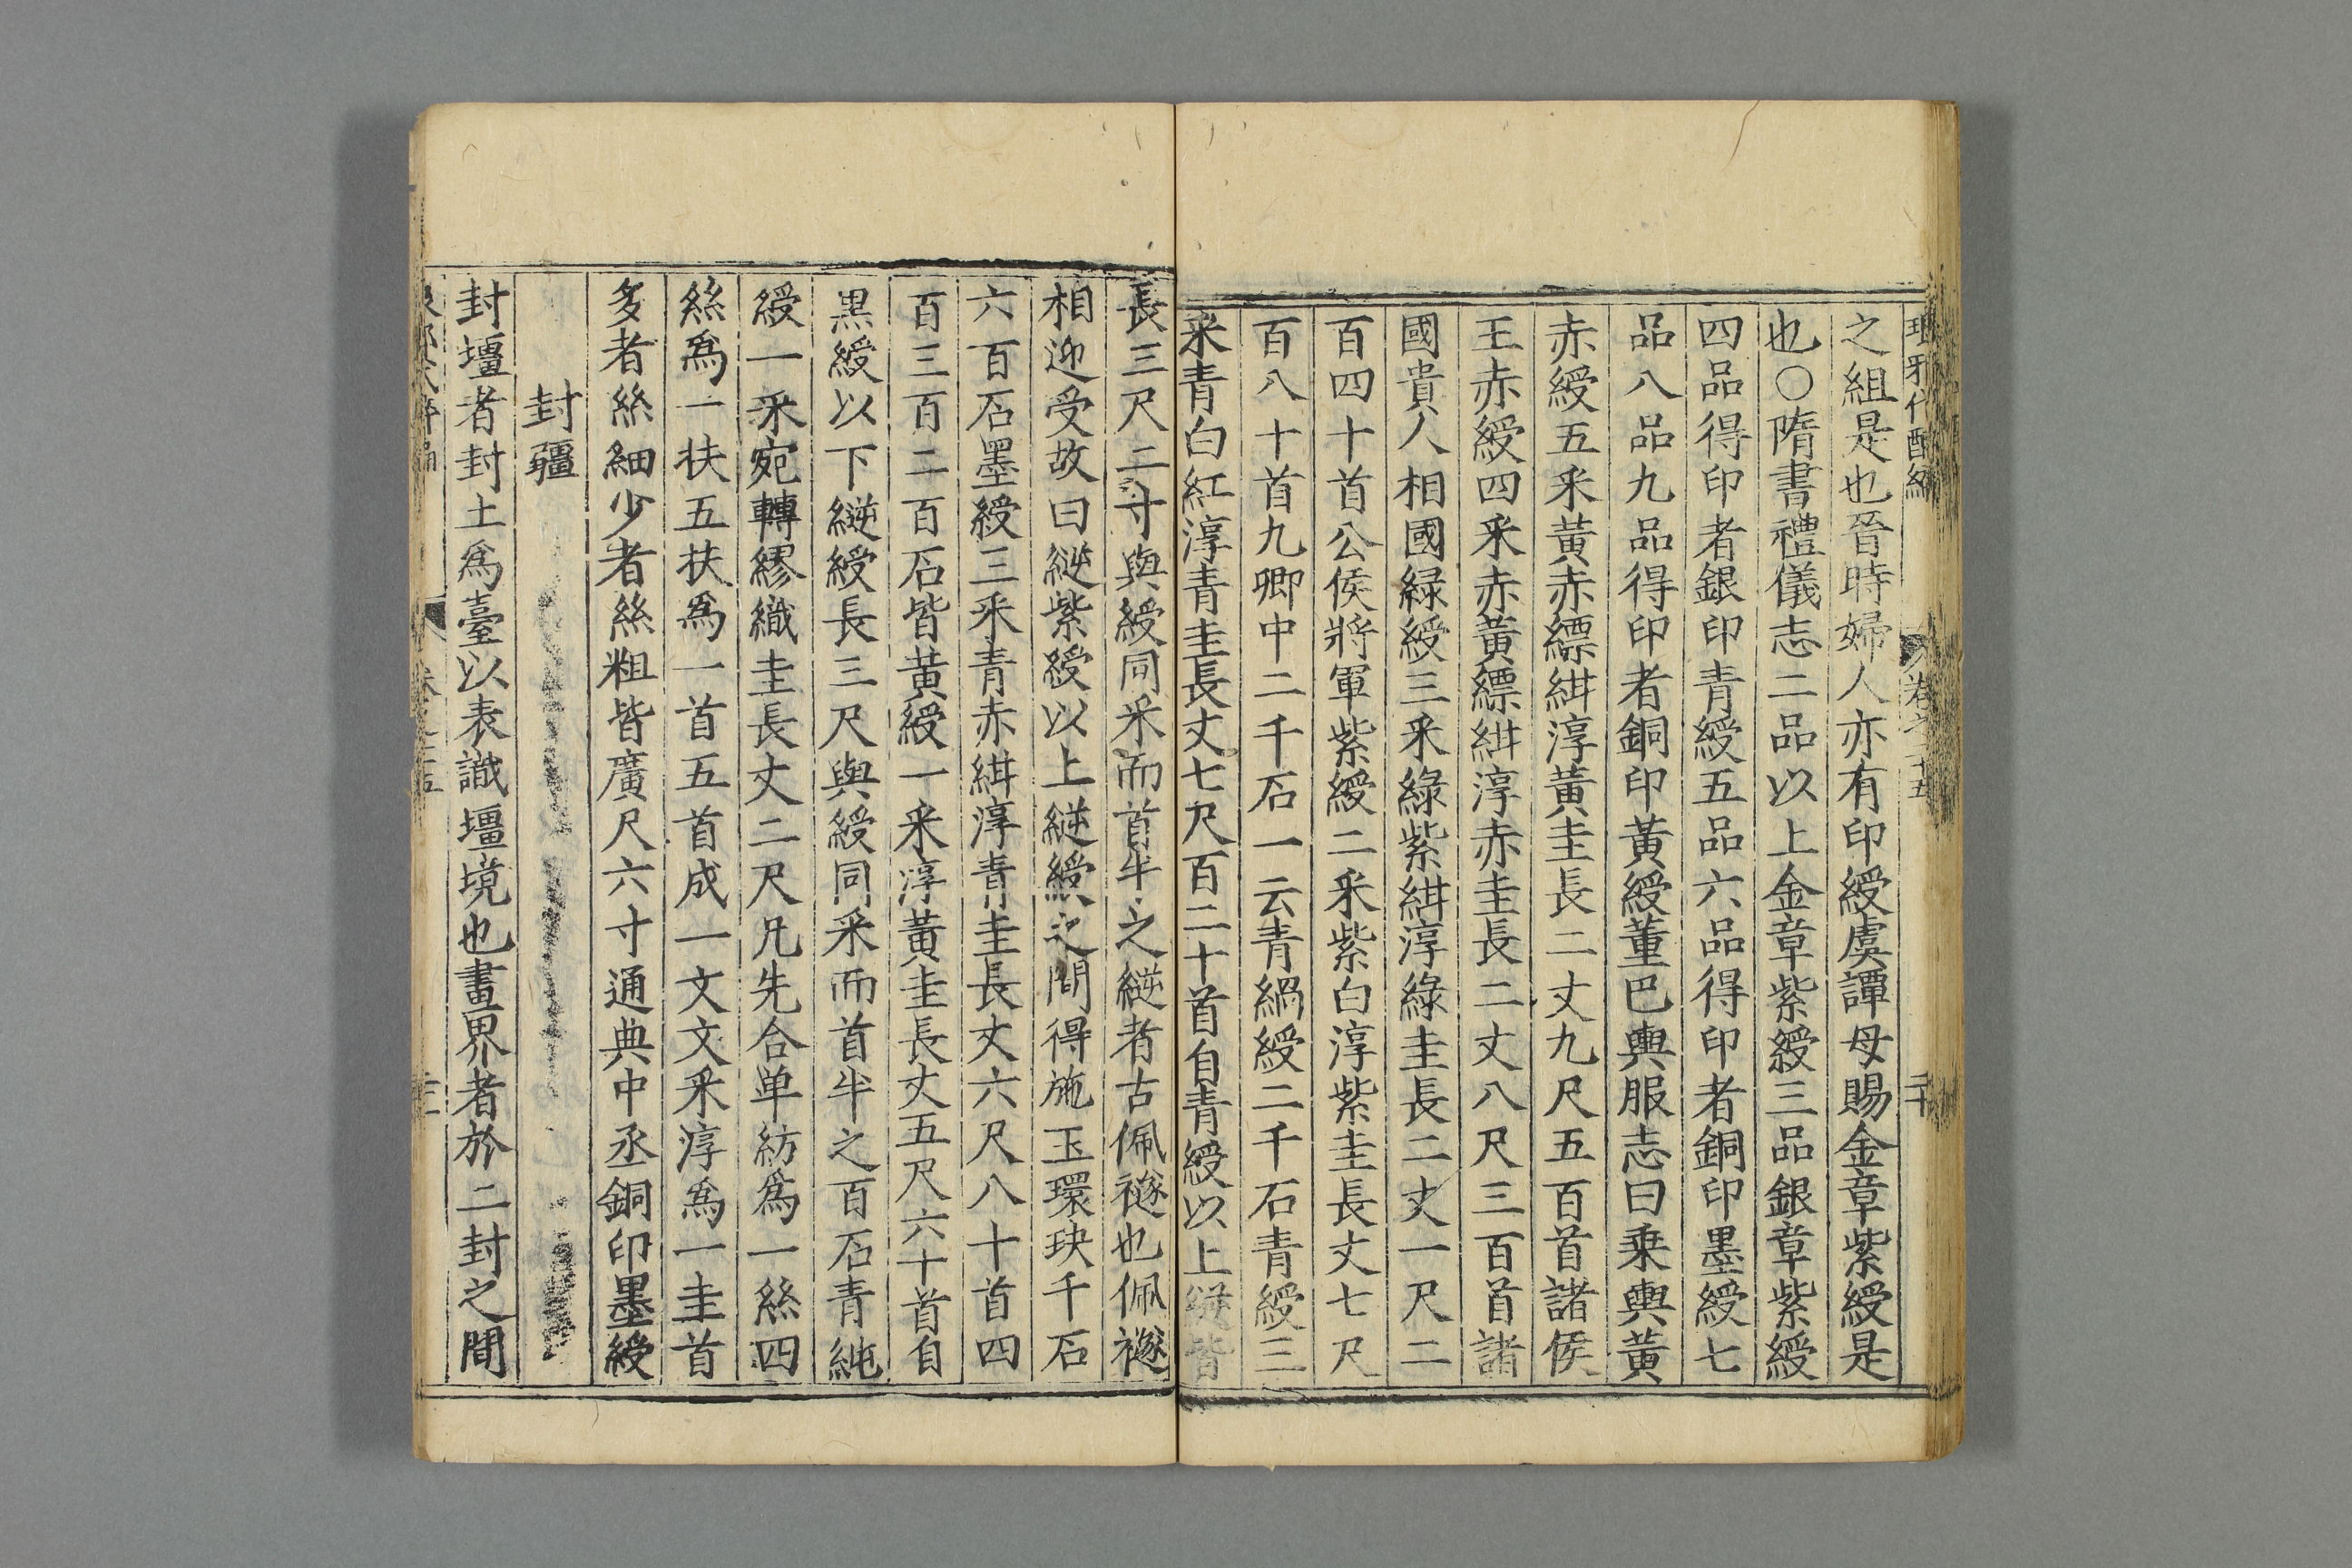 之組是也晉時婦人亦有印綬虞譚母賜金章紫綬是
也○隋書禮儀志二品以上金章紫綬三品銀章紫綬
四品得印者銀印青綬五品六品得印者銅印墨綬七
品八品九品得印者銅印黃綬董巴輿服志曰乗輿黃
赤綬五釆黃赤縹紺淳黃圭長二丈九尺五百首諸侯
王赤綬四釆赤黃縹紺淳赤圭長二丈八尺三百首諸
國貴人相國緑綬三釆綠紫紺淳綠圭長二丈一尺二
百四十首公侯將軍紫綬二釆紫白淳紫圭長丈七尺
百八十首九卿中二千石一云青緺綬二千石青綬三
釆青白紅淳青圭長丈七尺百二十首自青綬以上縌皆
長三尺二寸與綬同釆而首半之縌者古佩襚也佩襚
相迎受故曰縌紫綬以上縌綬之間得施玉環玦千石
六百石墨綬三釆青赤紺淳青圭長丈六尺八十首四
百三百二百石皆黃綬一釆淳黃圭長丈五尺六十首自
黒綬以下縌綬長三尺與綬同釆而首半之百石青純
綬一釆宛轉繆織圭長丈二尺凡先合单紡爲一絲四
絲爲一扶五扶爲一首五首成一文文釆淳爲一圭首
多者絲細少者絲粗皆廣尺六寸通典中丞銅印墨綬
封疆
封壃者封土爲臺以表識壃境也畫界者於二封之間